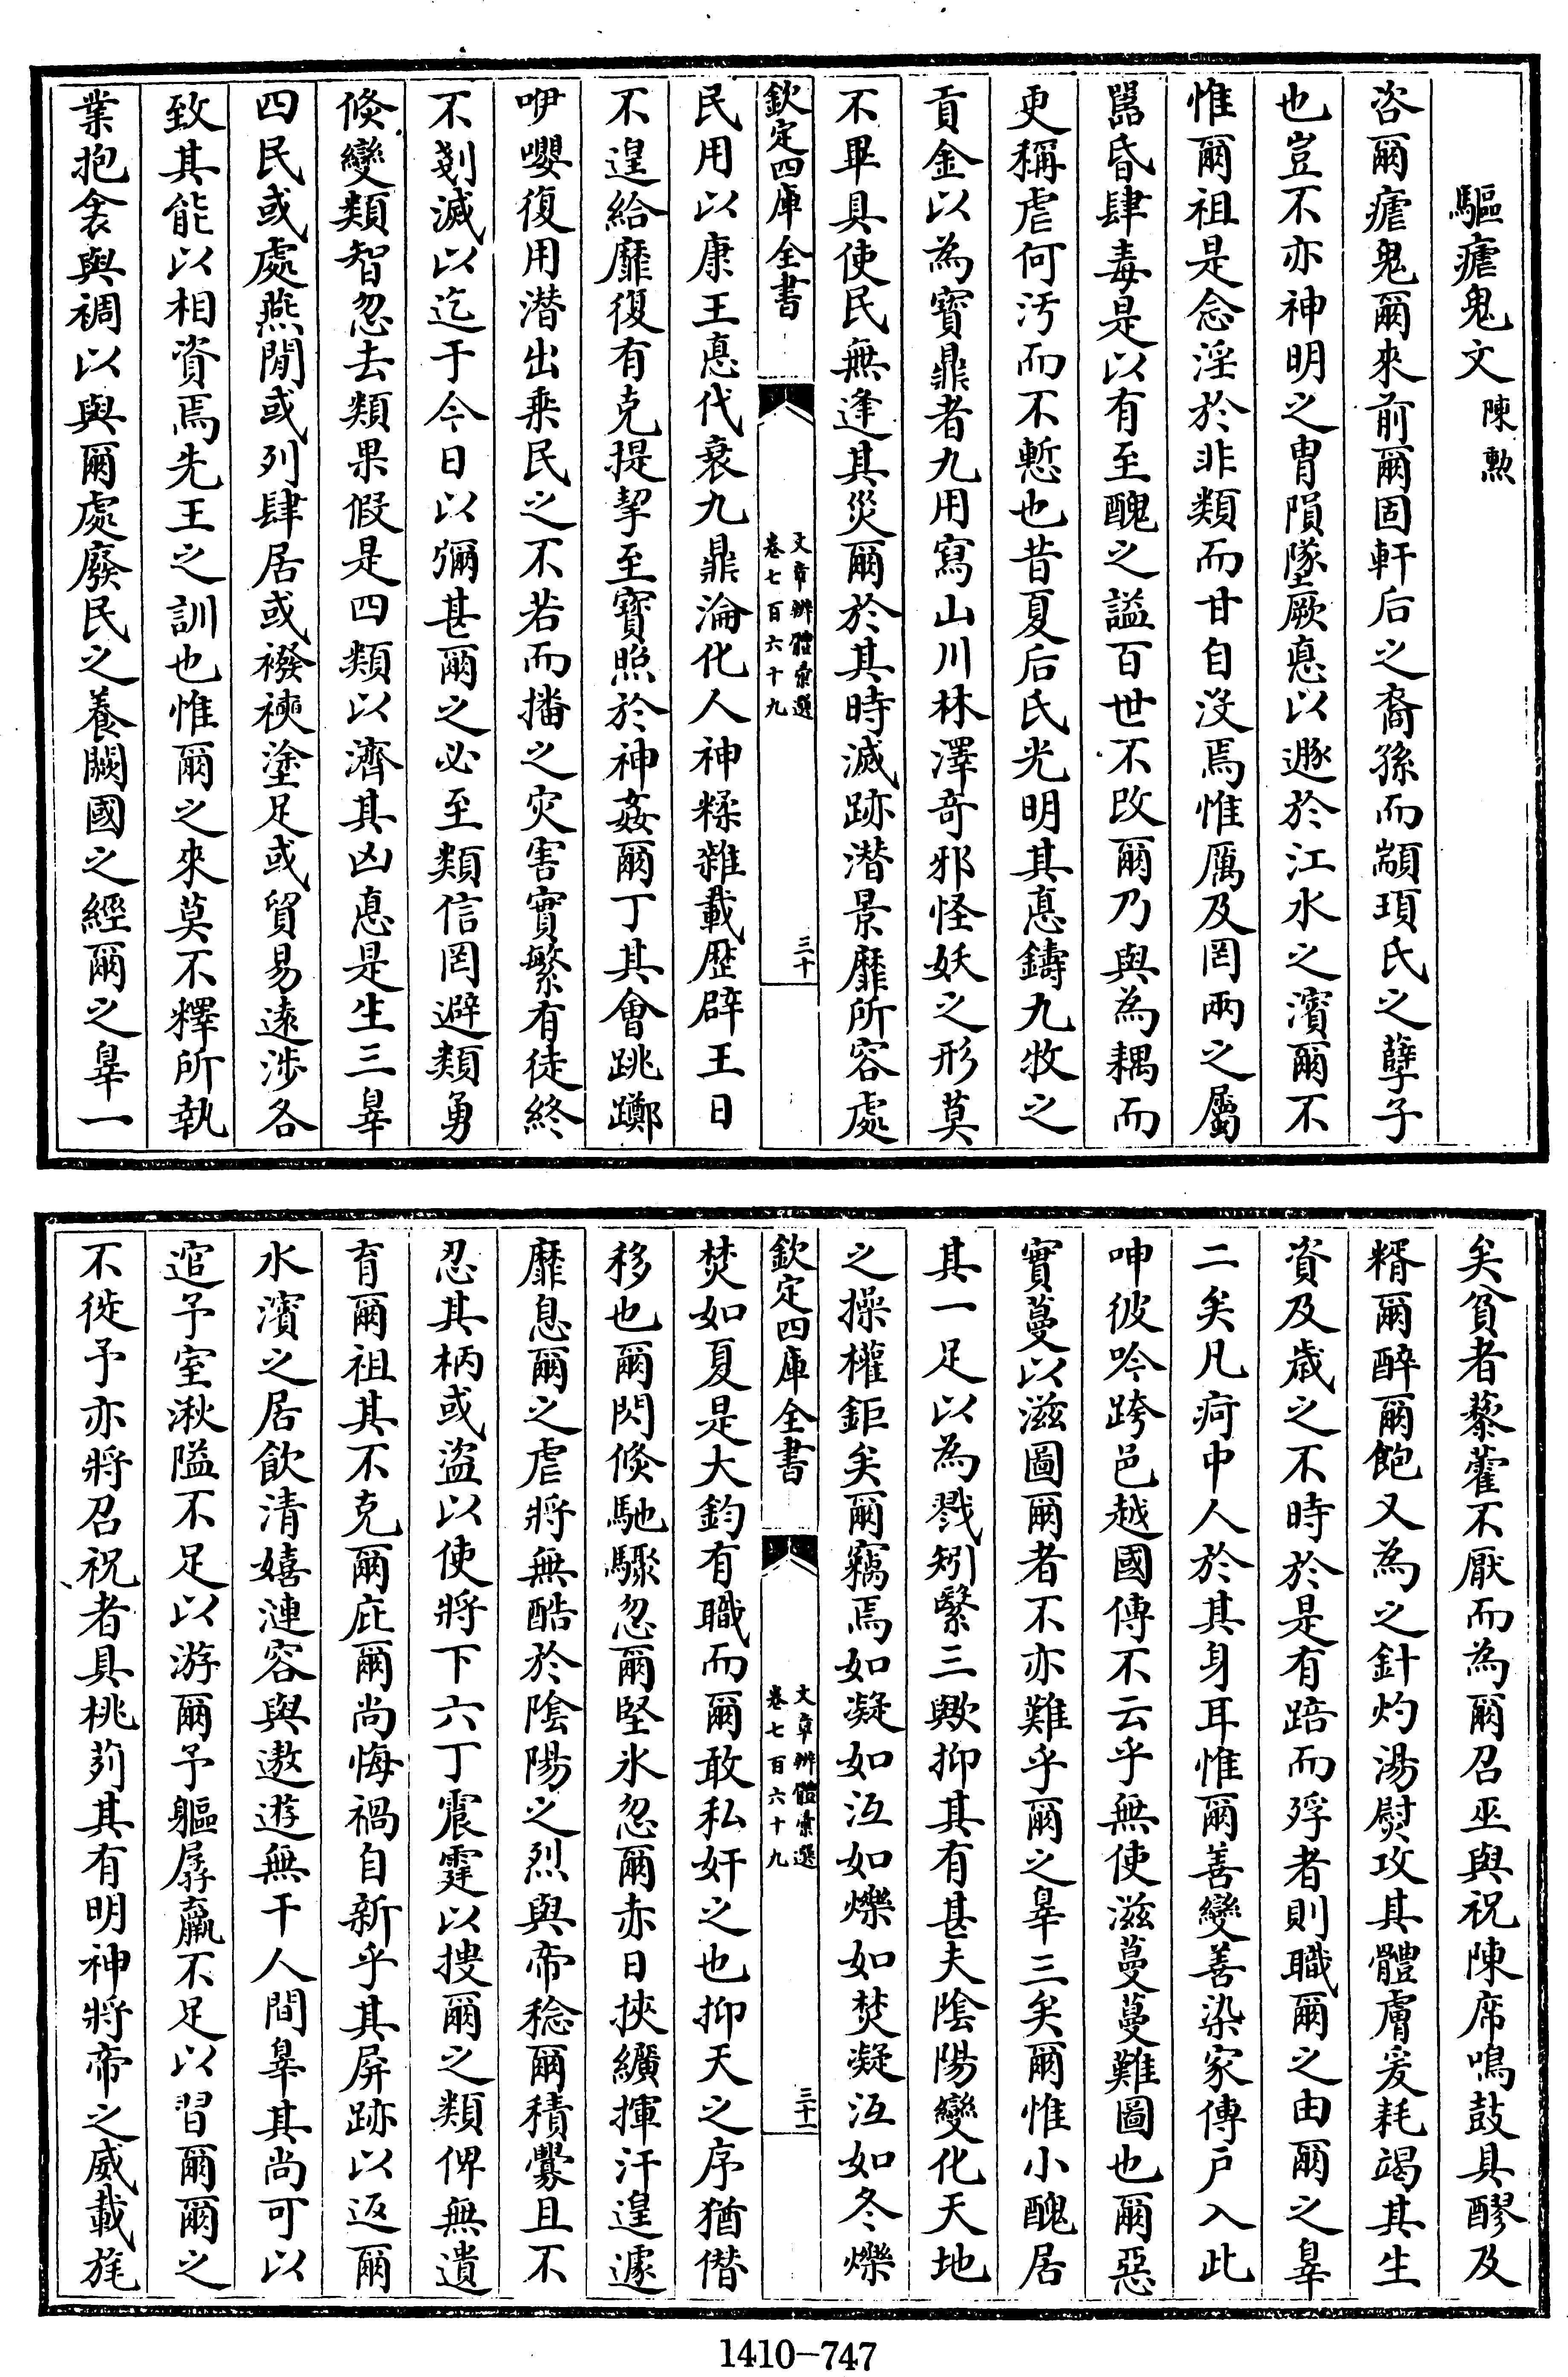 驅瘧鬼文 陳勲
咨爾瘧鬼爾來前爾固軒后之裔孫而顓頊氏之孽子
也豈不亦神明之冑隕墜厥悳以遯於江水之濱爾不
惟爾祖是念淫於非類而甘自没焉惟厲及罔兩之屬
嚚昏肆毒是以有至醜之謚百世不改爾乃與為耦而
更稱虐何汚而不慙也昔夏后氏光明其悳鑄九牧之
貢金以為寶鼎者九用寫山川林澤奇邪怪妖之形莫
不畢具使民無逢其災爾於其時滅跡潛景靡所容處
欽定四庫全書
文章辨體彙選
卷七百六十九
三十
民用以康王悳代衰九鼎淪化人神糅雜載歷辟王日
不遑給靡復有克提挈至寶照於神姦爾丁其會跳躑
咿嚶復用潛出乗民之不若而播之灾害實繁有徒終
不剗滅以迄于今日以彌甚爾之必至類信罔避類勇
倏變類智忽去類果假是四類以濟其凶悳是生三辠
四民或處燕閒或列肆居或襏襫塗足或貿易逺涉各
致其能以相資焉先王之訓也惟爾之來莫不釋所執
業抱衾與裯以與爾處廢民之養闕國之經爾之辠一
矣貧者藜藿不厭而為爾召巫與祝陳席鳴鼓具醪及
糈爾醉爾飽又為之針灼湯熨攻其體膚爰耗竭其生
資及歳之不時於是有踣而殍者則職爾之由爾之辠
二矣凡疴中人於其身耳惟爾善變善染家傳户入此
呻彼吟跨邑越國傳不云乎無使滋蔓蔓難圖也爾惡
實蔓以滋圖爾者不亦難乎爾之辠三矣爾惟小醜居
其一足以為戮矧繄三歟抑其有甚夫陰陽變化天地
之操權鉅矣爾竊焉如凝如沍如爍如焚凝沍如冬爍
欽定四庫全書
文章辨體彙選
卷七百六十九
三十一
焚如夏是大鈞有職而爾敢私奸之也抑天之序猶僭
移也爾閃倏馳驟忽爾堅氷忽爾赤日挾纊揮汗遑遽
靡息爾之虐將無酷於陰陽之烈與帝稔爾積釁且不
忍其柄或盗以使將下六丁震霆以搜爾之類俾無遺
育爾祖其不克爾庇爾尚悔禍自新乎其屏跡以返爾
水濱之居飲清嬉漣容與遨遊無干人間辠其尚可以
逭予室湫隘不足以游爾予軀孱羸不足以習爾爾之
不徙予亦將召祝者具桃茢其有明神將帝之威載旄
1410-747